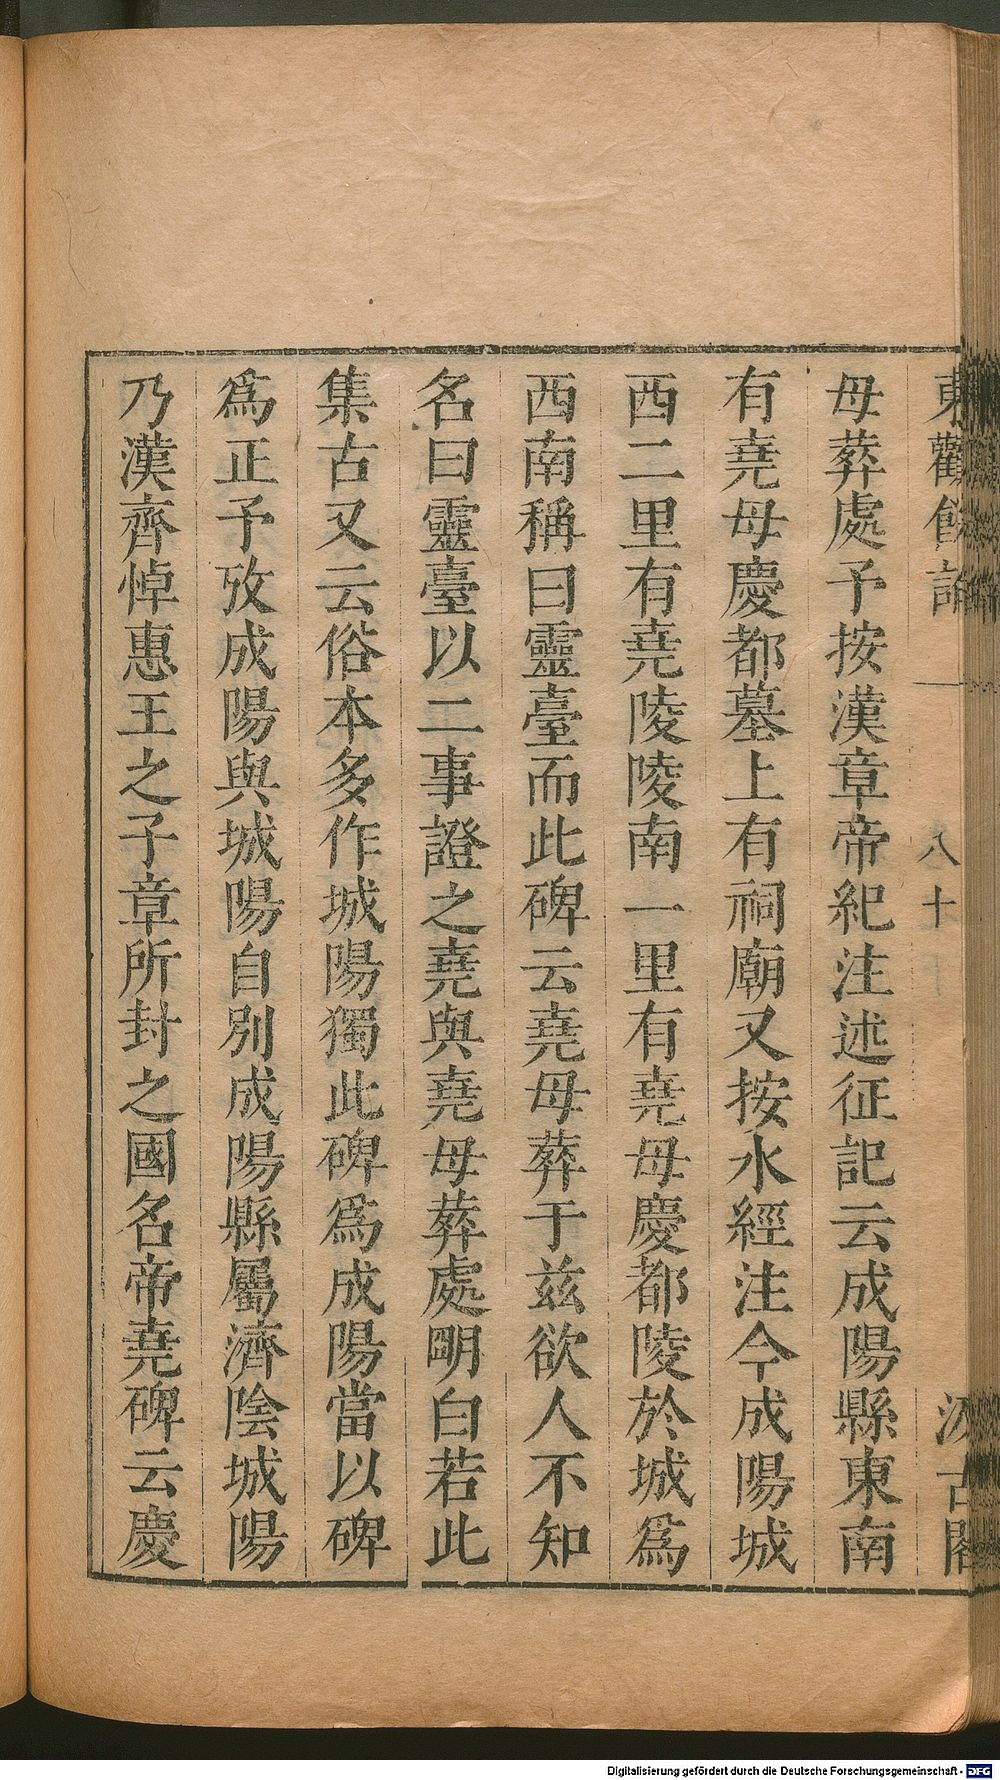 東觀餘論
一
八十
汲古閣
母葬處予按漢章帝紀注述征記云成陽縣東南
有堯母慶都墓上有祠廟又按水經注今成陽城
西二里有堯陵陵南一里有堯母慶都陵於城爲
西南稱曰靈臺而此碑云堯母葬于兹欲人不知
名曰靈臺以二事證之堯與堯母葬處明白若此
集古又云俗本多作城陽獨此碑爲成陽當以碑
爲正予攷成陽與城陽自別成陽縣屬濟陰城陽
乃漢齊悼惠王之子章所封之國名帝堯碑云慶
Digitalisierung gefördert durch die Deutsche Forschungsgemeinschaft - DFG